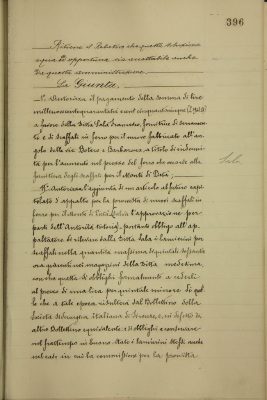 396
Ritiene il Relatore che questa soluzione
equa ed opportuna sia accettabile anche
da questa amministrazione.
La Giunta
1º. Autorizza il pagamento della somma di lire
a favore della Ditta Sala Francesco, fornitrice di
e di scaffali in ferro per il nuovo fabbricato all'an-
golo delle vie Botero e Barbaroux, a titolo di indenni-
tà per l'aumento nel prezzo del ferro che occorre alla
fornitura degli scaffali per il Monte di Pietà;
2º. Autorizza l'aggiunta di un articolo al futuro capi-
tolato d'appalto per la provvista di nuovi scaffali in
ferro pel Monte di Pietà (salva l'approvazione per
parte dell'Autorità tutoria), portante obbligo all'ap-
paltatore di ritirare dalla Ditta Sala i lamierini per
scaffali nella quantità massima di quintali
ora giacenti nei magazzini della Ditta medesima,
che questa si obblighi formalmente a cederli
al prezzo di una lira per quintale minore di quel-
lo che a tale epoca risulterà dal Bollettino della
Società Siderurgica Italiana di Genova, o, in difetto da
altro Bollettino equivalente; e si obblighi a conservare
nel frattempo in buono stato i lamierini stessi anche
nel caso in cui la commissione per la provvista
Sala